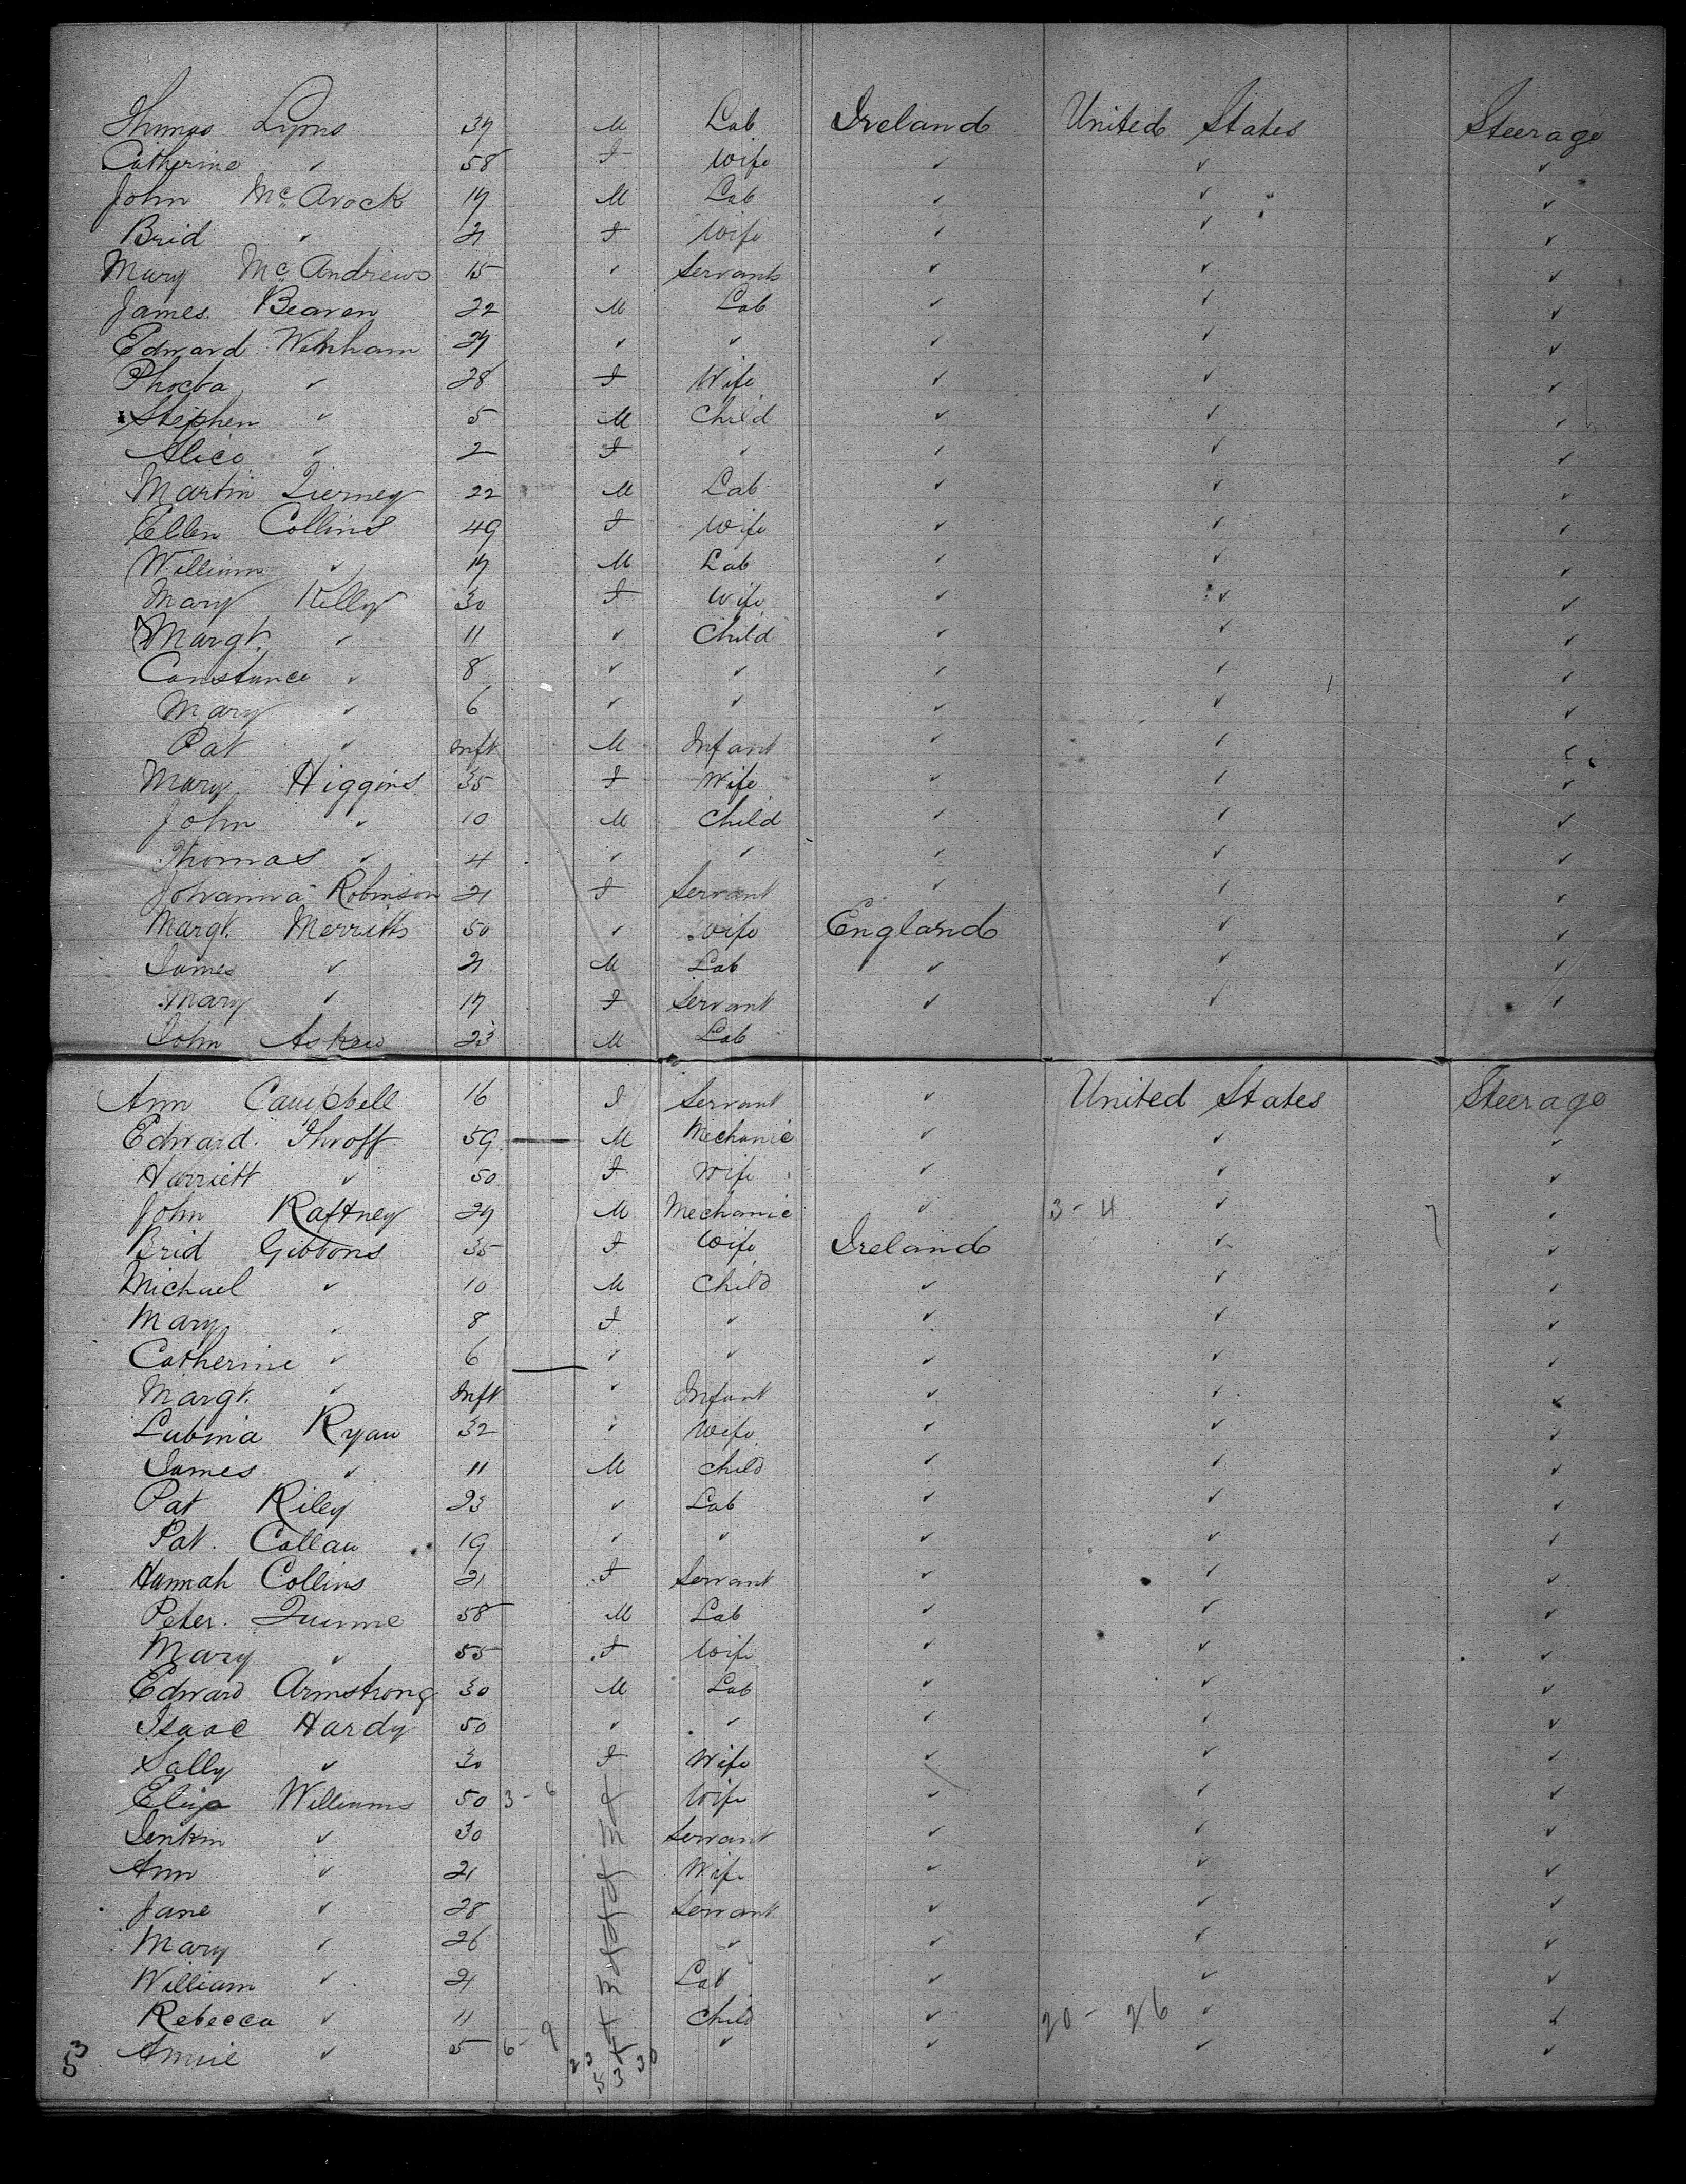 Thomas Lyons 37 M Lab Ireland United States Steerage
Catherine ✓ 58 F Wife ✓ ✓ ✓
John McAvock 17 M Lab ✓ ✓ ✓
Brid ✓ 21 F Wife ✓ ✓ ✓
Mary McAndrews 15 ✓ Servant ✓ ✓ ✓
James Beaven 22 M Lab ✓ ✓ ✓
Edward Wenham 27 ✓ ✓ ✓ ✓ ✓
Phoeba ✓ 28 F Wife ✓ ✓ ✓
Stephen ✓ 5 M Child ✓ ✓ ✓
Alice ✓ 2 F ✓ ✓ ✓ ✓
Martin Tierney 22 M Lab ✓ ✓ ✓
Ellen Collins 49 F Wife ✓ ✓ ✓
William ✓ 17 M Lab ✓ ✓ ✓
Mary Kelly 30 F Wife ✓ ✓ ✓
Margt. ✓ 11 ✓ Child ✓ ✓ ✓
Constance ✓ 8 ✓ ✓ ✓ ✓ ✓
Mary ✓ 6 ✓ ✓ ✓ ✓ ✓
Pat ✓ Inft M Infant ✓ ✓ ✓
Mary Higgins 35 F Wife ✓ ✓ ✓
John ✓ 10 M Child ✓ ✓ ✓
Thomas ✓ 4 ✓ ✓ ✓ ✓ ✓
Johanna Robinson 21 F Servant ✓ ✓ ✓
Margt. Merritts 50 ✓ Wife England ✓ ✓
James ✓ 21 M Lab ✓ ✓ ✓
Mary ✓ 17 F Servant ✓ ✓ ✓
John Askew 23 M Lab
Ann Campbell 16 F Servant ✓ United States Steerage
Edward 59 M Mechanic ✓ ✓ ✓
Harriett ✓ 50 F Wife ✓ ✓ ✓
John Raftney 29 M Mechanic ✓ 3-4 ✓ ✓
Brid Gibbons 35 F Wife Ireland ✓ ✓
Michael ✓ 10 M Child ✓ ✓ ✓
Mary ✓ 8 F ✓ ✓ ✓ ✓
Catherine ✓ 6 ✓ ✓ ✓ ✓ ✓
Margt. ✓ Inft ✓ Infant ✓ ✓ ✓
Lubina Ryan 32 ✓ Wife ✓ ✓ ✓
James ✓ 11 M Child ✓ ✓ ✓
Pat Riley 23 ✓ Lab ✓ ✓ ✓
Pat. Callan 19 ✓ ✓ ✓ ✓ ✓
Hannah Collins 21 F Servant ✓ ✓ ✓
Peter Quinne 58 M Lab ✓ ✓ ✓
Mary ✓ 55 F Wife ✓ ✓ ✓
Edward Armstrong 30 M Lab ✓ ✓ ✓
Isaac Hardy 50 ✓ ✓ ✓ ✓ ✓
Sally ✓ 30 F Wife ✓ ✓ ✓
Eliza Williams 50 3-6 F Wife ✓ ✓ ✓
Jenkin ✓ 30 M Servant ✓ ✓ ✓
Ann ✓ 21 F Wife ✓ ✓ ✓
Jane ✓ 28 F Servant ✓ ✓ ✓
Mary ✓ 26 F ✓ ✓ ✓ ✓
William ✓ 21 M Lab ✓ ✓ ✓
Rebecca ✓ 11 F Child ✓ 20-26 ✓ ✓
53 Annie ✓ 5 6-9 F ✓ ✓ ✓ ✓
23 30
53